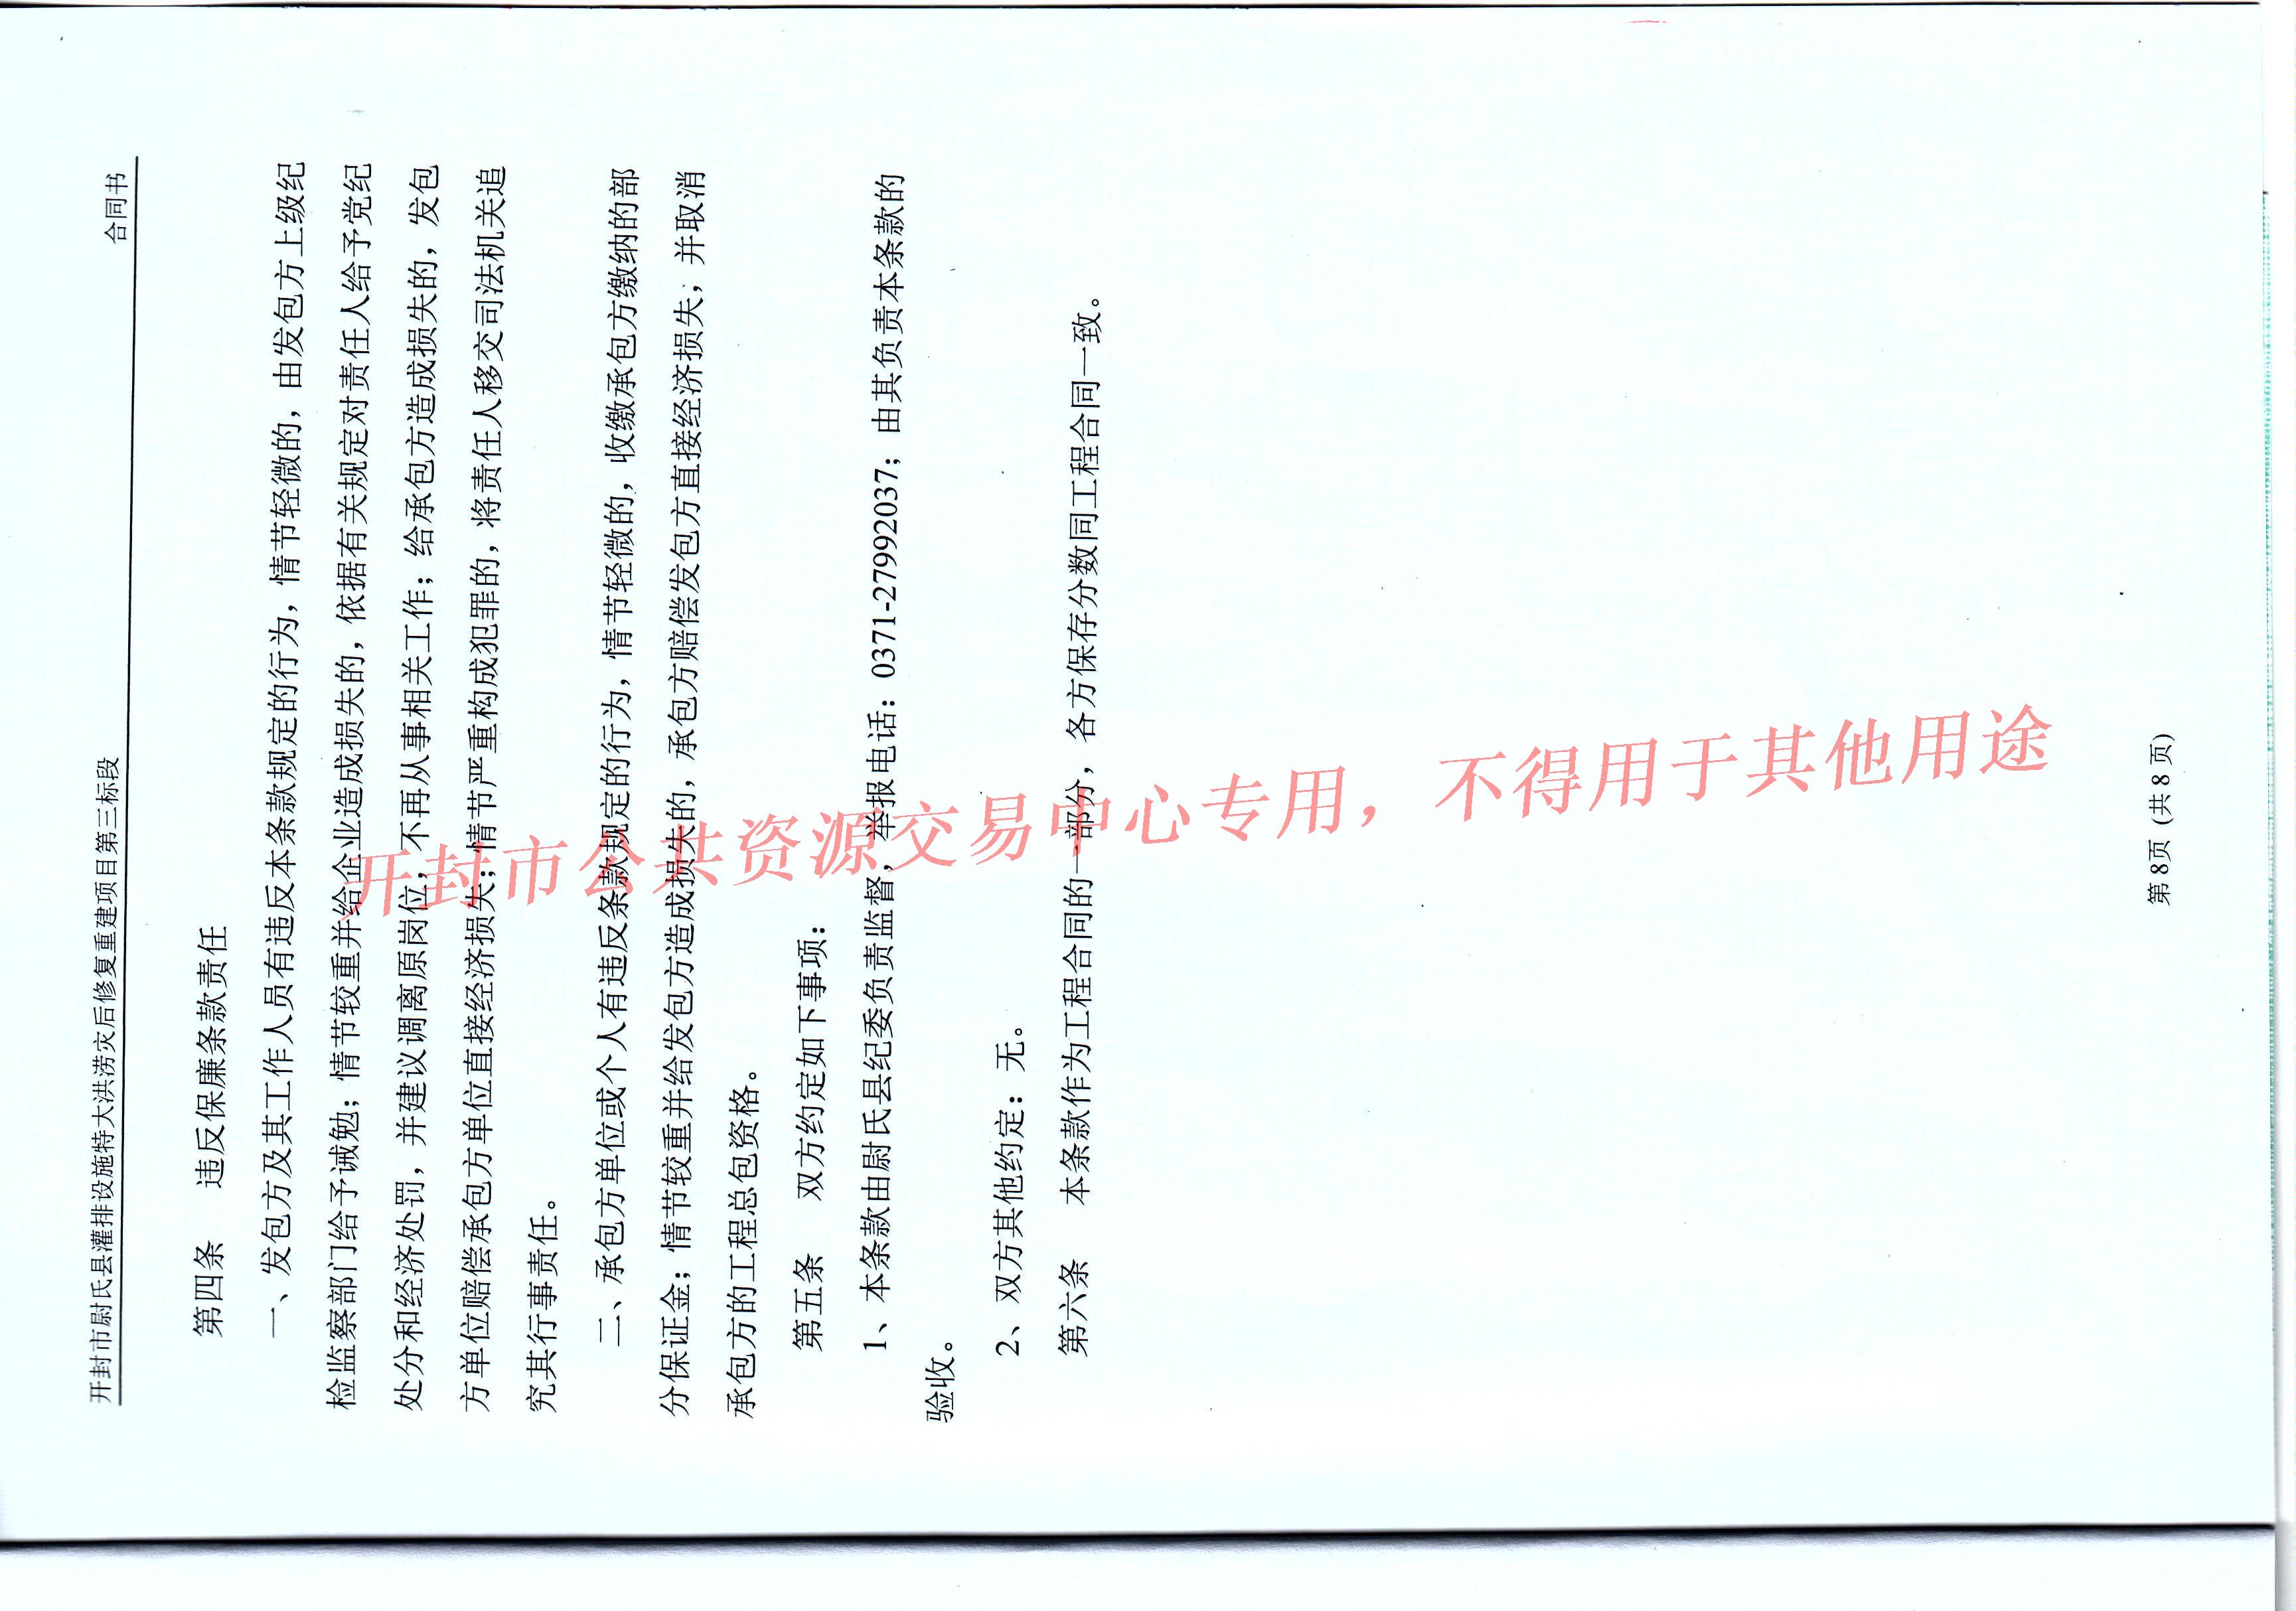 开封市尉氏县灌排设施特大洪涝灾后修复重建项目第三标段 合同书
第四条 违反保廉条款责任
一、发包方及其工作人员有违反本条款规定的行为，情节轻微的，由发包方上级纪
检监察部门给予诫勉；情节较重并给企业造成损失的，依据有关规定对责任人给予党纪
处分和经济处罚，并建议调离原岗位，不再从事相关工作；给承包方造成损失的，发包
方单位赔偿承包方单位直接经济损失；情节严重构成犯罪的，将责任人移交司法机关追
究其行事责任。
二、承包方单位或个人有违反条款规定的行为，情节轻微的，收缴承包方缴纳的部
分保证金；情节较重并给发包方造成损失的，承包方赔偿发包方直接经济损失，并取消
承包方的工程总包资格。
第五条 双方约定如下事项：
1、本条款由尉氏县纪委负责监督，举报电话：0371-27992037；由其负责本条款的
验收。
2、双方其他约定：无。
第六条 本条款作为工程合同的一部分，各方保存分数同工程合同一致。
开封市公共资源交易中心专用，不得用于其他用途
第 8页 (共 8 页)